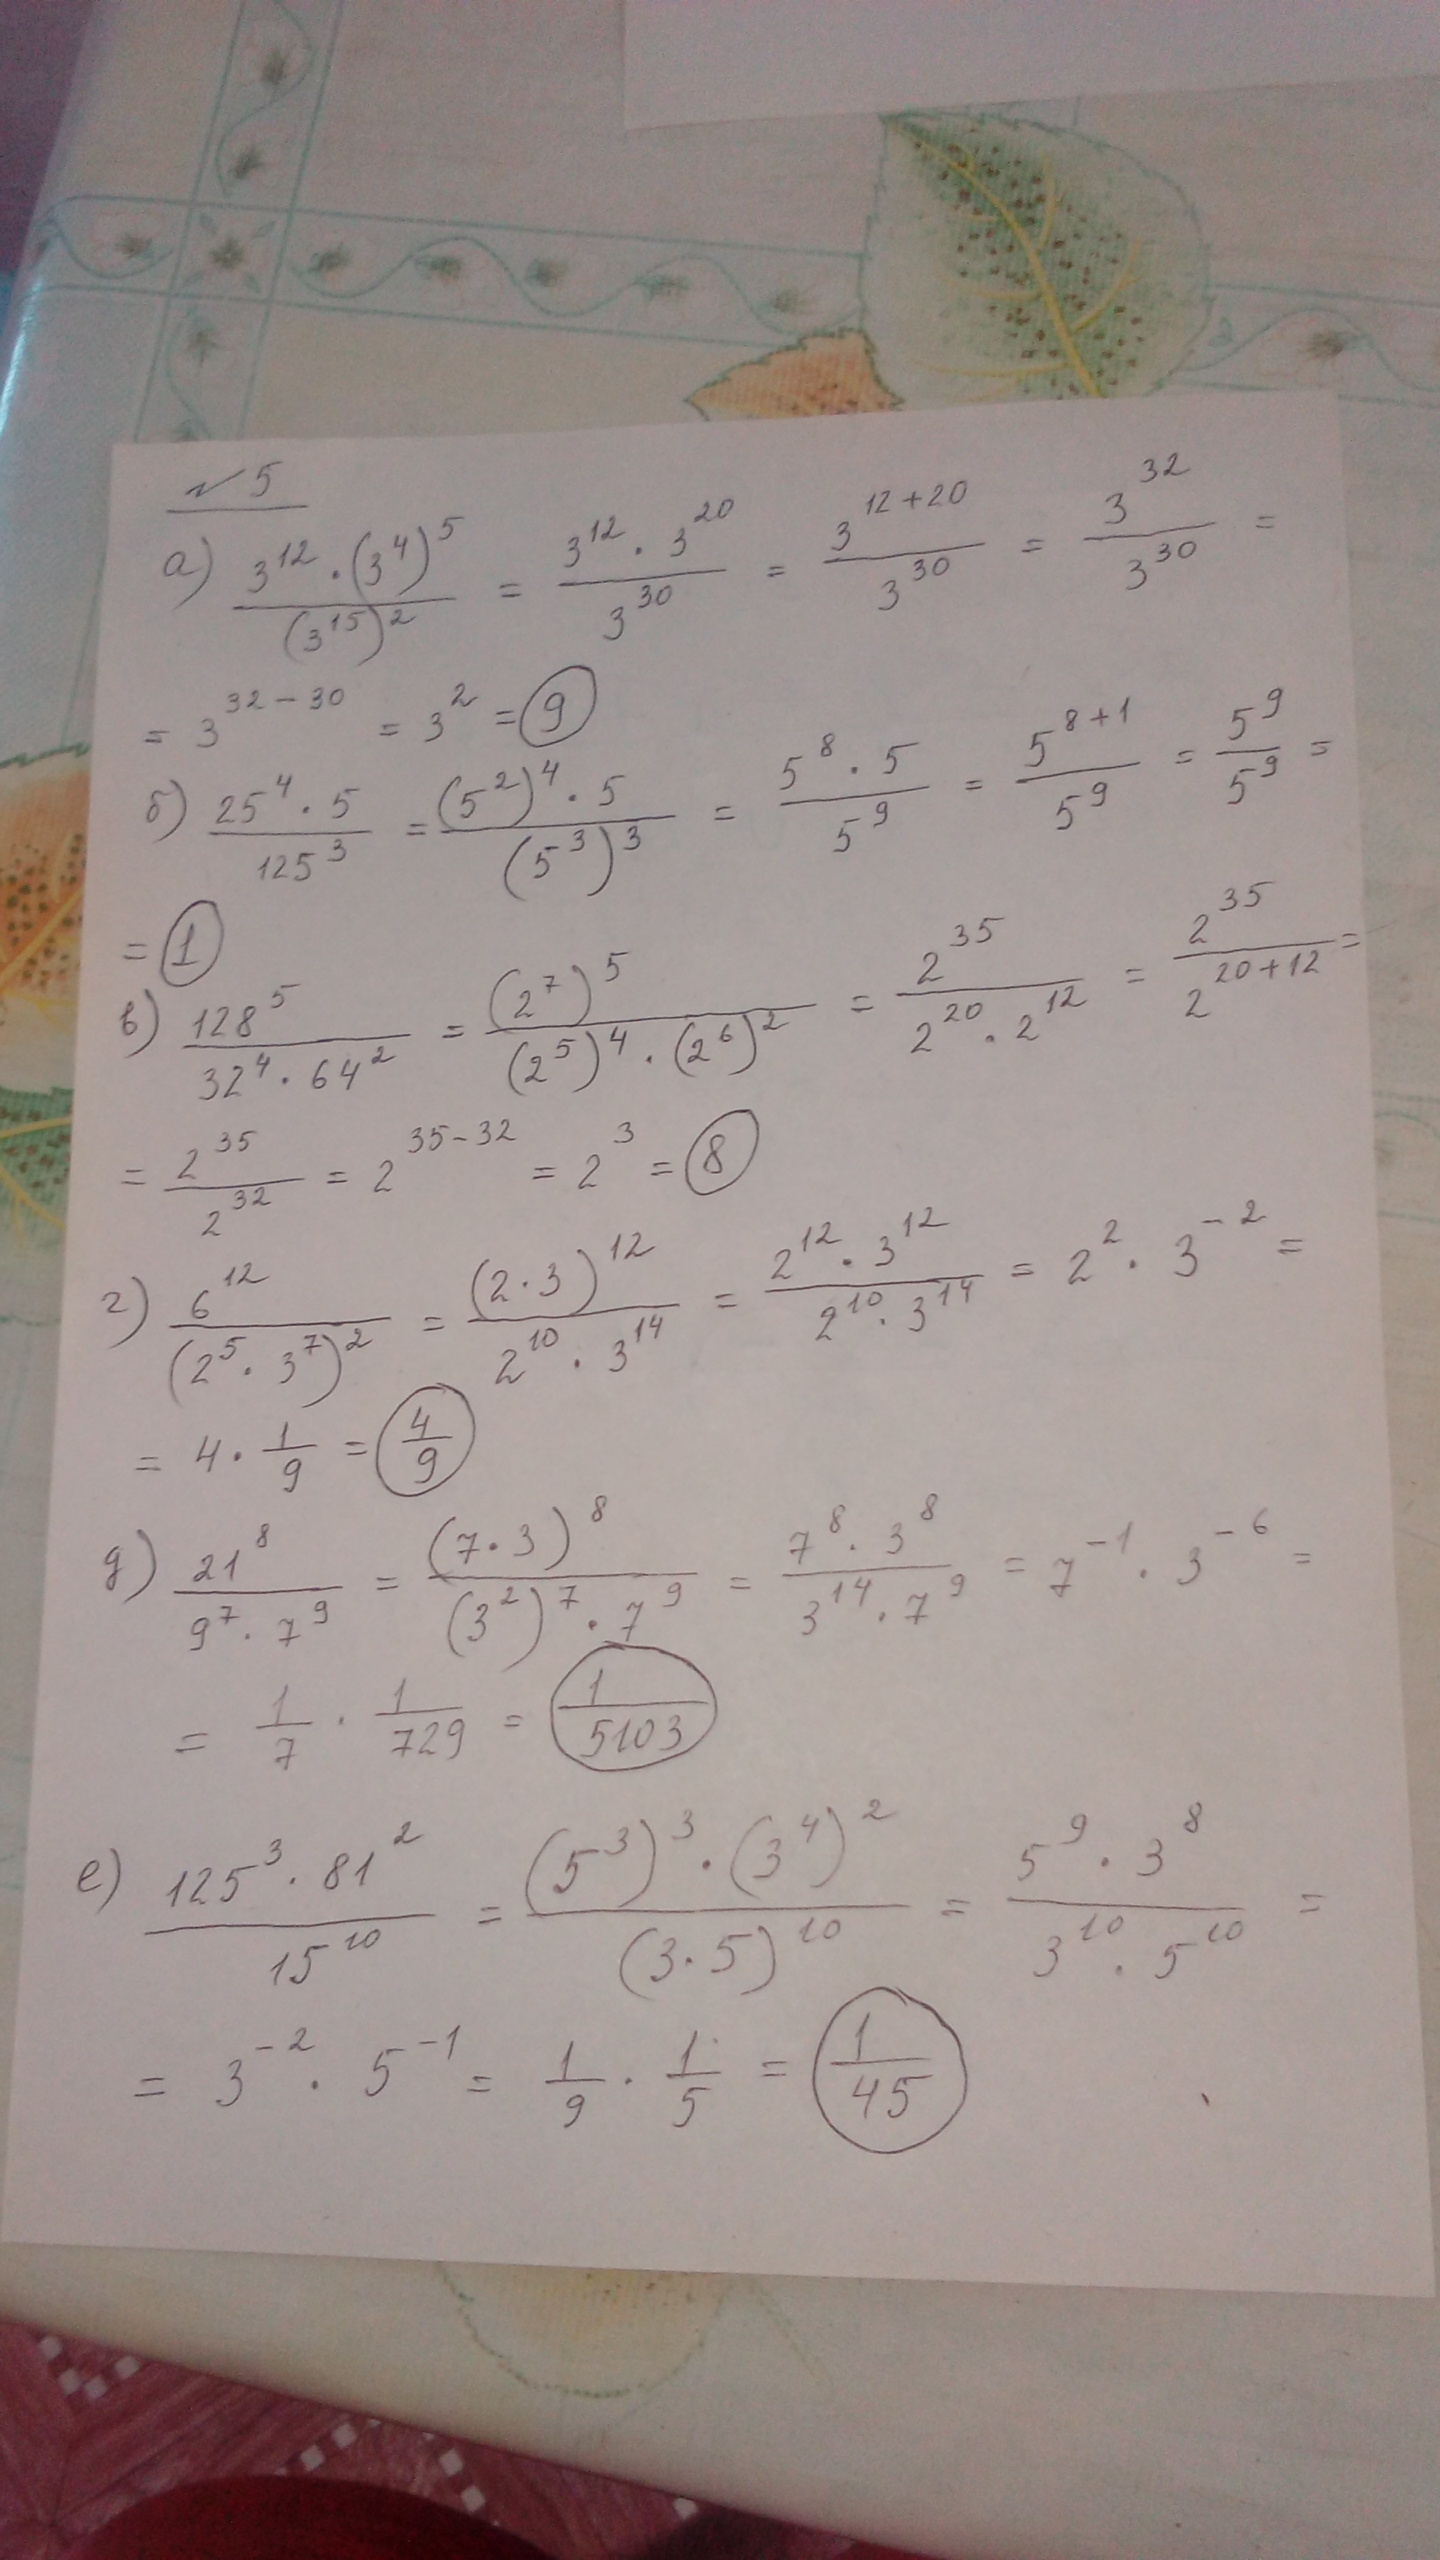 №5
а) \frac{3^{12} \cdot (3^4)^5}{(3^{15})^2} = \frac{3^{12} \cdot 3^{20}}{3^{30}} = \frac{3^{12+20}}{3^{30}} = \frac{3^{32}}{3^{30}} =
= 3^{32-30} = 3^2 = 9
б) \frac{25^4 \cdot 5}{125^3} = \frac{(5^2)^4 \cdot 5}{(5^3)^3} = \frac{5^8 \cdot 5}{5^9} = \frac{5^{8+1}}{5^9} = \frac{5^9}{5^9} =
= 1
в) \frac{128^5}{32^4 \cdot 64^2} = \frac{(2^7)^5}{(2^5)^4 \cdot (2^6)^2} = \frac{2^{35}}{2^{20} \cdot 2^{12}} = \frac{2^{35}}{2^{20+12}} =
= \frac{2^{35}}{2^{32}} = 2^{35-32} = 2^3 = 8
г) \frac{6^{12}}{(2^5 \cdot 3^7)^2} = \frac{(2 \cdot 3)^{12}}{2^{10} \cdot 3^{14}} = \frac{2^{12} \cdot 3^{12}}{2^{10} \cdot 3^{14}} = 2^2 \cdot 3^{-2} =
= 4 \cdot \frac{1}{9} = \frac{4}{9}
д) \frac{21^8}{9^7 \cdot 7^9} = \frac{(7 \cdot 3)^8}{(3^2)^7 \cdot 7^9} = \frac{7^8 \cdot 3^8}{3^{14} \cdot 7^9} = 7^{-1} \cdot 3^{-6} =
= \frac{1}{7} \cdot \frac{1}{729} = \frac{1}{5103}
е) \frac{125^3 \cdot 81^2}{15^{10}} = \frac{(5^3)^3 \cdot (3^4)^2}{(3 \cdot 5)^{10}} = \frac{5^9 \cdot 3^8}{3^{10} \cdot 5^{10}} =
= 3^{-2} \cdot 5^{-1} = \frac{1}{9} \cdot \frac{1}{5} = \frac{1}{45}